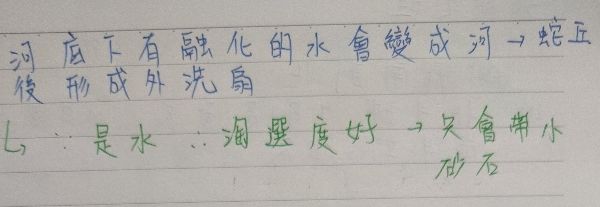 河底下有融化的水會變成河→蛇丘
後形成外洗扇
↳ ∵是水 ∴淘選度好 → 只會帶小
砂石